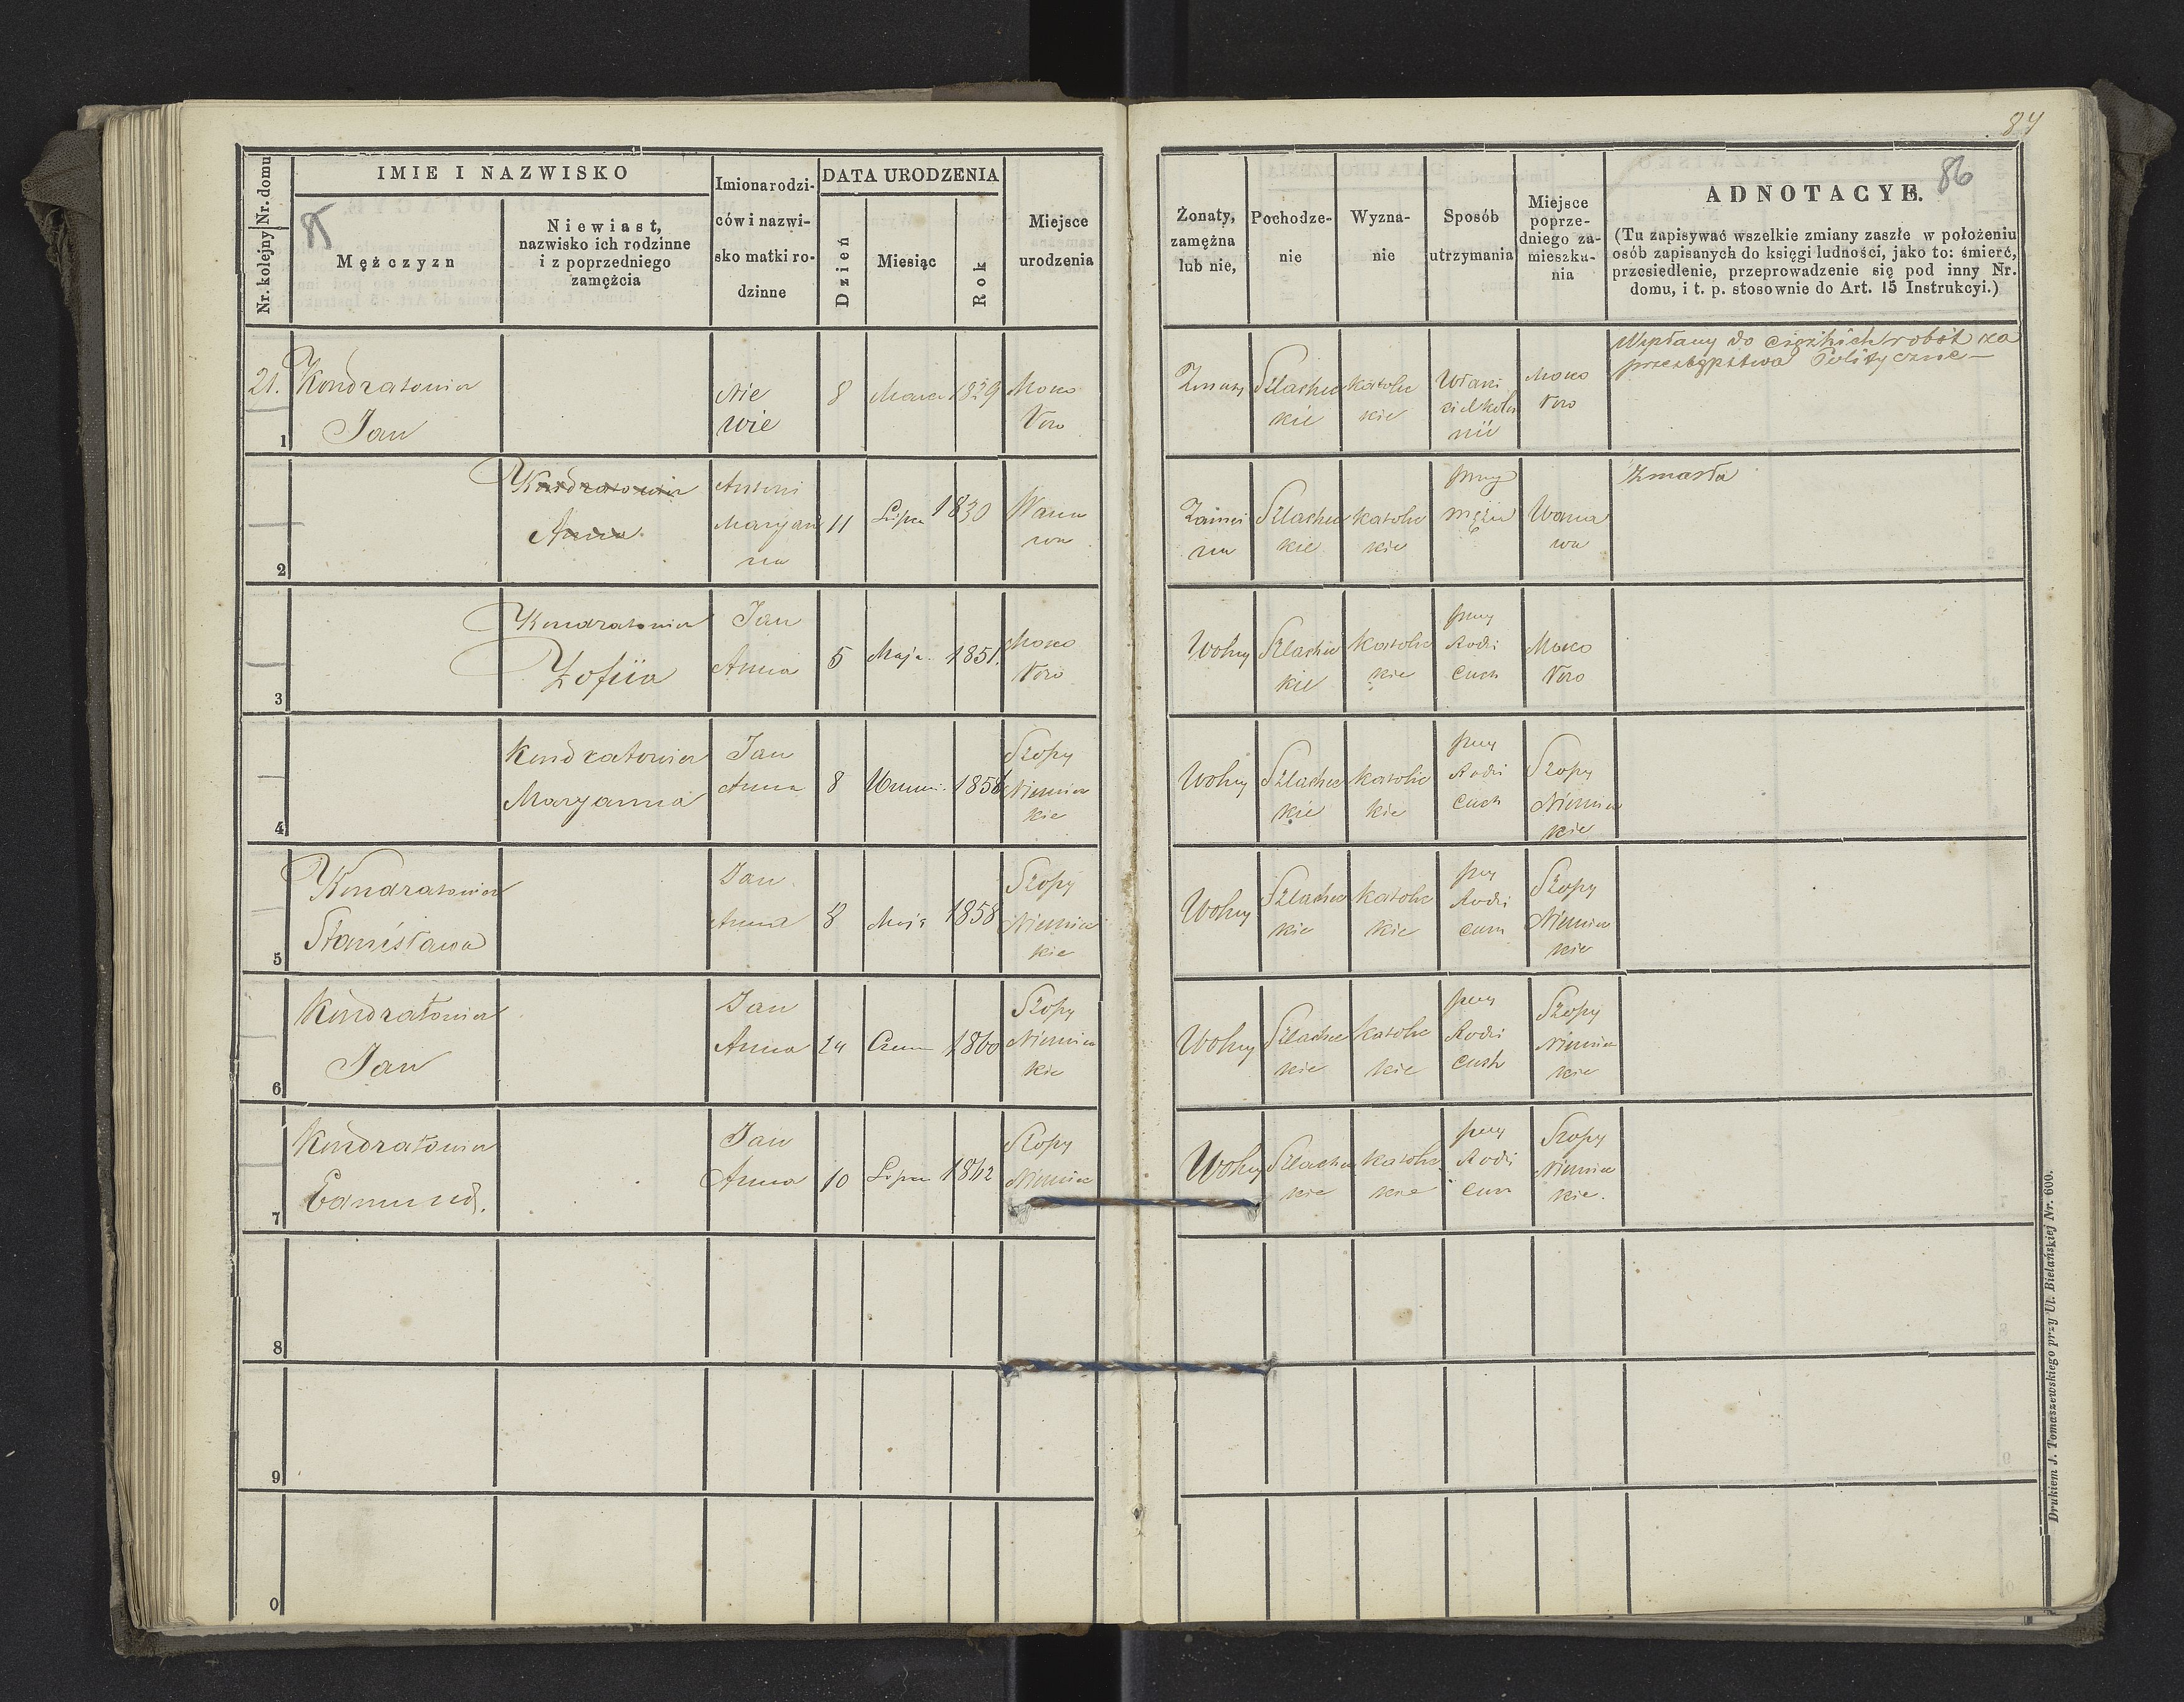 84
Nr. kolejny Nr. domu
IMIE I NAZWISKO
85
Mężczyzn
Niewiast,
nazwisko ich rodzinne
i z poprzedniego
zamężcia
Imiona rodzi-
ców i nazwi-
sko matki ro-
dzinne
DATA URODZENIA
Dzień
Miesiąc
Rok
Miejsce
urodzenia
Żonaty,
zamężna
lub nie,
Pochodze-
nie
Wyzna-
nie
Sposób
utrzymania
Miejsce
poprze-
dniego za-
mieszka-
nia
ADNOTACYE.
86
(Tu zapisywać wszelkie zmiany zaszłe w położeniu
osób zapisanych do księgi ludności, jako to: śmierć,
przesiedlenie, przeprowadzenie się pod inny Nr.
domu, i t. p. stosownie do Art. 15 Instrukcyi.)
21.
1
Kondratowicz
Jan
Nie
wie
8
Marca
1829
Moko
tow
Szlachec
kie
Katolic
kie
Właści
ciel kolo
nii
Moko
tow
do ciężkich robót za
przestępstwa Polityczne
2
Kondratowicz
Anna
Antoni
Maryan
na
11
Lipca
1830
Warsza
wa
Zamęż
na
Szlachec
kie
Katolic
kie
przy
mężu
Warsza
wa
Zmarła
3
Kondratowicz
Zofiia
Jan
Anna
5
Maja
1851.
Moko
tow
Wolny
Szlachec
kie
Katolic
kie
przy
Rodzi
cach
Moko
tow
4
Kondratowicz
Maryanna
Jan
Anna
8
Wrześni
Szopy
Niemiec
kie
Wolny
Szlachec
kie
Katolic
kie
przy
Rodzi
cach
Szopy
Niemiec
kie
5
Kondratowicz
Stanisława
Jan
Anna
8
Maja
1858
Szopy
Niemiec
kie
Wolny
Szlachec
kie
Katolic
kie
przy
Rodzi
cach
Szopy
Niemiec
kie
6
Kondratowicz
Jan
Jan
Anna
24
Czerw
1860
Szopy
Niemiec
kie
Wolny
Szlachec
kie
Katolic
kie
przy
Rodzi
cach
Szopy
Niemiec
kie
7
Kondratowicz
Edmund.
Jan
Anna
10
Lipca
1862
Szopy
Niemiec
Wolny
Szlachec
kie
Katolic
kie
przy
Rodzi
cach
Szopy
Niemiec
kie.
8
9
0
Drukiem J. Tomaszewskiego przy Ul. Bielańskiej Nr. 600.